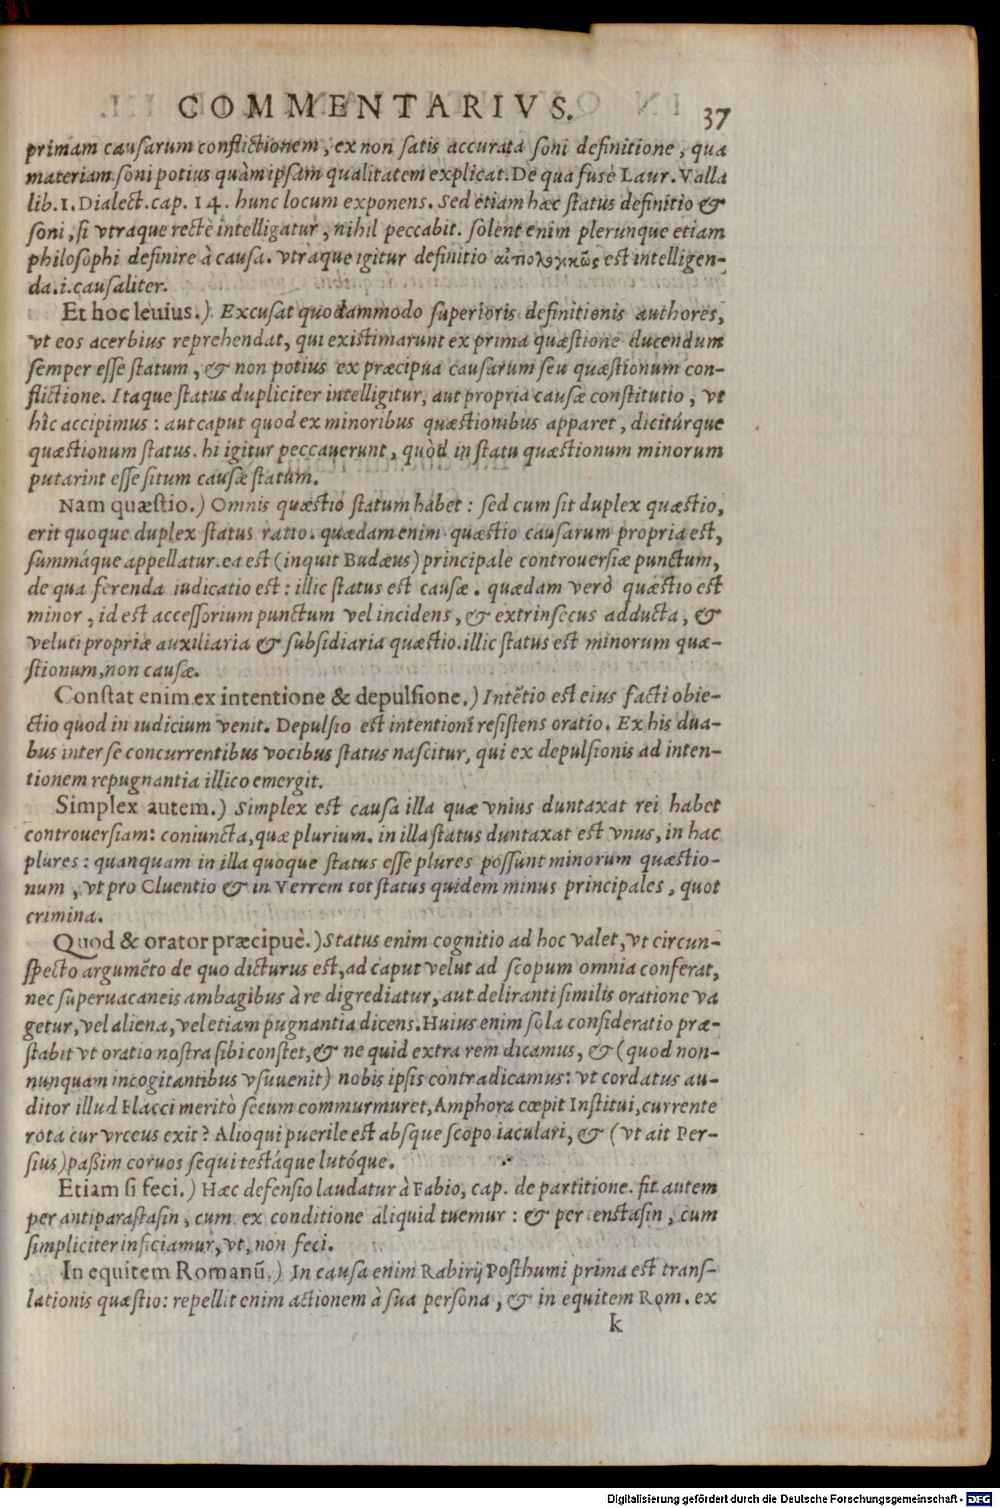 COMMENTARIVS. 37
primam causarum conflictionem, ex non satis accurata soni definitione, qua
materiam soni potius quàm ipsam qualitatem explicat. De qua fusè Laur. Valla
lib. 1. Dialect. cap. 14. hunc locum exponens. Sed etiam hæc status definitio &
soni, si vtraque rectè intelligatur, nihil peccabit. solent enim plerunque etiam
philosophi definire à causa. vtraque igitur definitio est intelligen-
da. i. causaliter.
Et hoc leuius.) Excusat quodammodo superioris definitionis authores,
vt eos acerbius reprehendat, qui existimarunt ex prima quæstione ducendum
semper esse statum, & non potius ex præcipua causarum seu quæstionum con-
flictione. Itaque status dupliciter intelligitur, aut propria causæ constitutio, vt
hîc accipimus: aut caput quod ex minoribus quæstionibus apparet, dicitúrque
quæstionum status. hi igitur peccauerunt, quòd in statu quæstionum minorum
putarint esse situm causæ statum.
Nam quæstio.) Omnis quæstio statum habet: sed cum sit duplex quæstio,
erit quoque duplex status ratio. quædam enim quæstio causarum propria est,
summáque appellatur. ea est (inquit Budæus) principale controuersiæ punctum,
de qua ferenda iudicatio est: illic status est causæ. quædam verò quæstio est
minor, id est accessorium punctum vel incidens, & extrinsecus adducta, &
veluti propriæ auxiliaria & subsidiaria quæstio. illic status est minorum quæ-
stionum, non causæ.
Constat enim ex intentione & depulsione.) Intẽtio est eius facti obie-
ctio quod in iudicium venit. Depulsio est intentioni resistens oratio. Ex his dua-
bus inter se concurrentibus vocibus status nascitur, qui ex depulsionis ad inten-
tionem repugnantia illico emergit.
Simplex autem.) Simplex est causa illa quæ vnius duntaxat rei habet
controuersiam: coniuncta, quæ plurium. in illa status duntaxat est vnus, in hac
plures: quanquam in illa quoque status esse plures possunt minorum quæstio-
num, vt pro Cluentio & in Verrem tot status quidem minus principales, quot
crimina.
Quod & orator præcipuè.) Status enim cognitio ad hoc valet, vt circun-
specto argumẽto de quo dicturus est, ad caput velut ad scopum omnia conferat,
nec superuacaneis ambagibus à re digrediatur, aut deliranti similis oratione va
getur, vel aliena, vel etiam pugnantia dicens. Huius enim sola consideratio præ-
stabit vt oratio nostra sibi constet, & ne quid extra rem dicamus, & (quod non-
nunquam incogitantibus vsuuenit) nobis ipsis contradicamus: vt cordatus au-
ditor illud Flacci meritò secum commurmuret, Amphora cœpit Institui, currente
rota cur vrceus exit? Alioqui puerile est absque scopo iaculari, & (vt ait Per-
sius) passim coruos sequi testáque lutóque.
Etiam si feci.) Hæc defensio laudatur à Fabio, cap. de partitione. fit autem
per antiparastasin, cum ex conditione aliquid tuemur: & per enstasin, cum
simpliciter inficiamur, vt, non feci.
In equitem Romanũ.) In causa enim Rabirij Posthumi prima est trans-
lationis quæstio: repellit enim actionem à sua persona, & in equitem Rom. ex
k
Digitalisierung gefördert durch die Deutsche Forschungsgemeinschaft - DFG